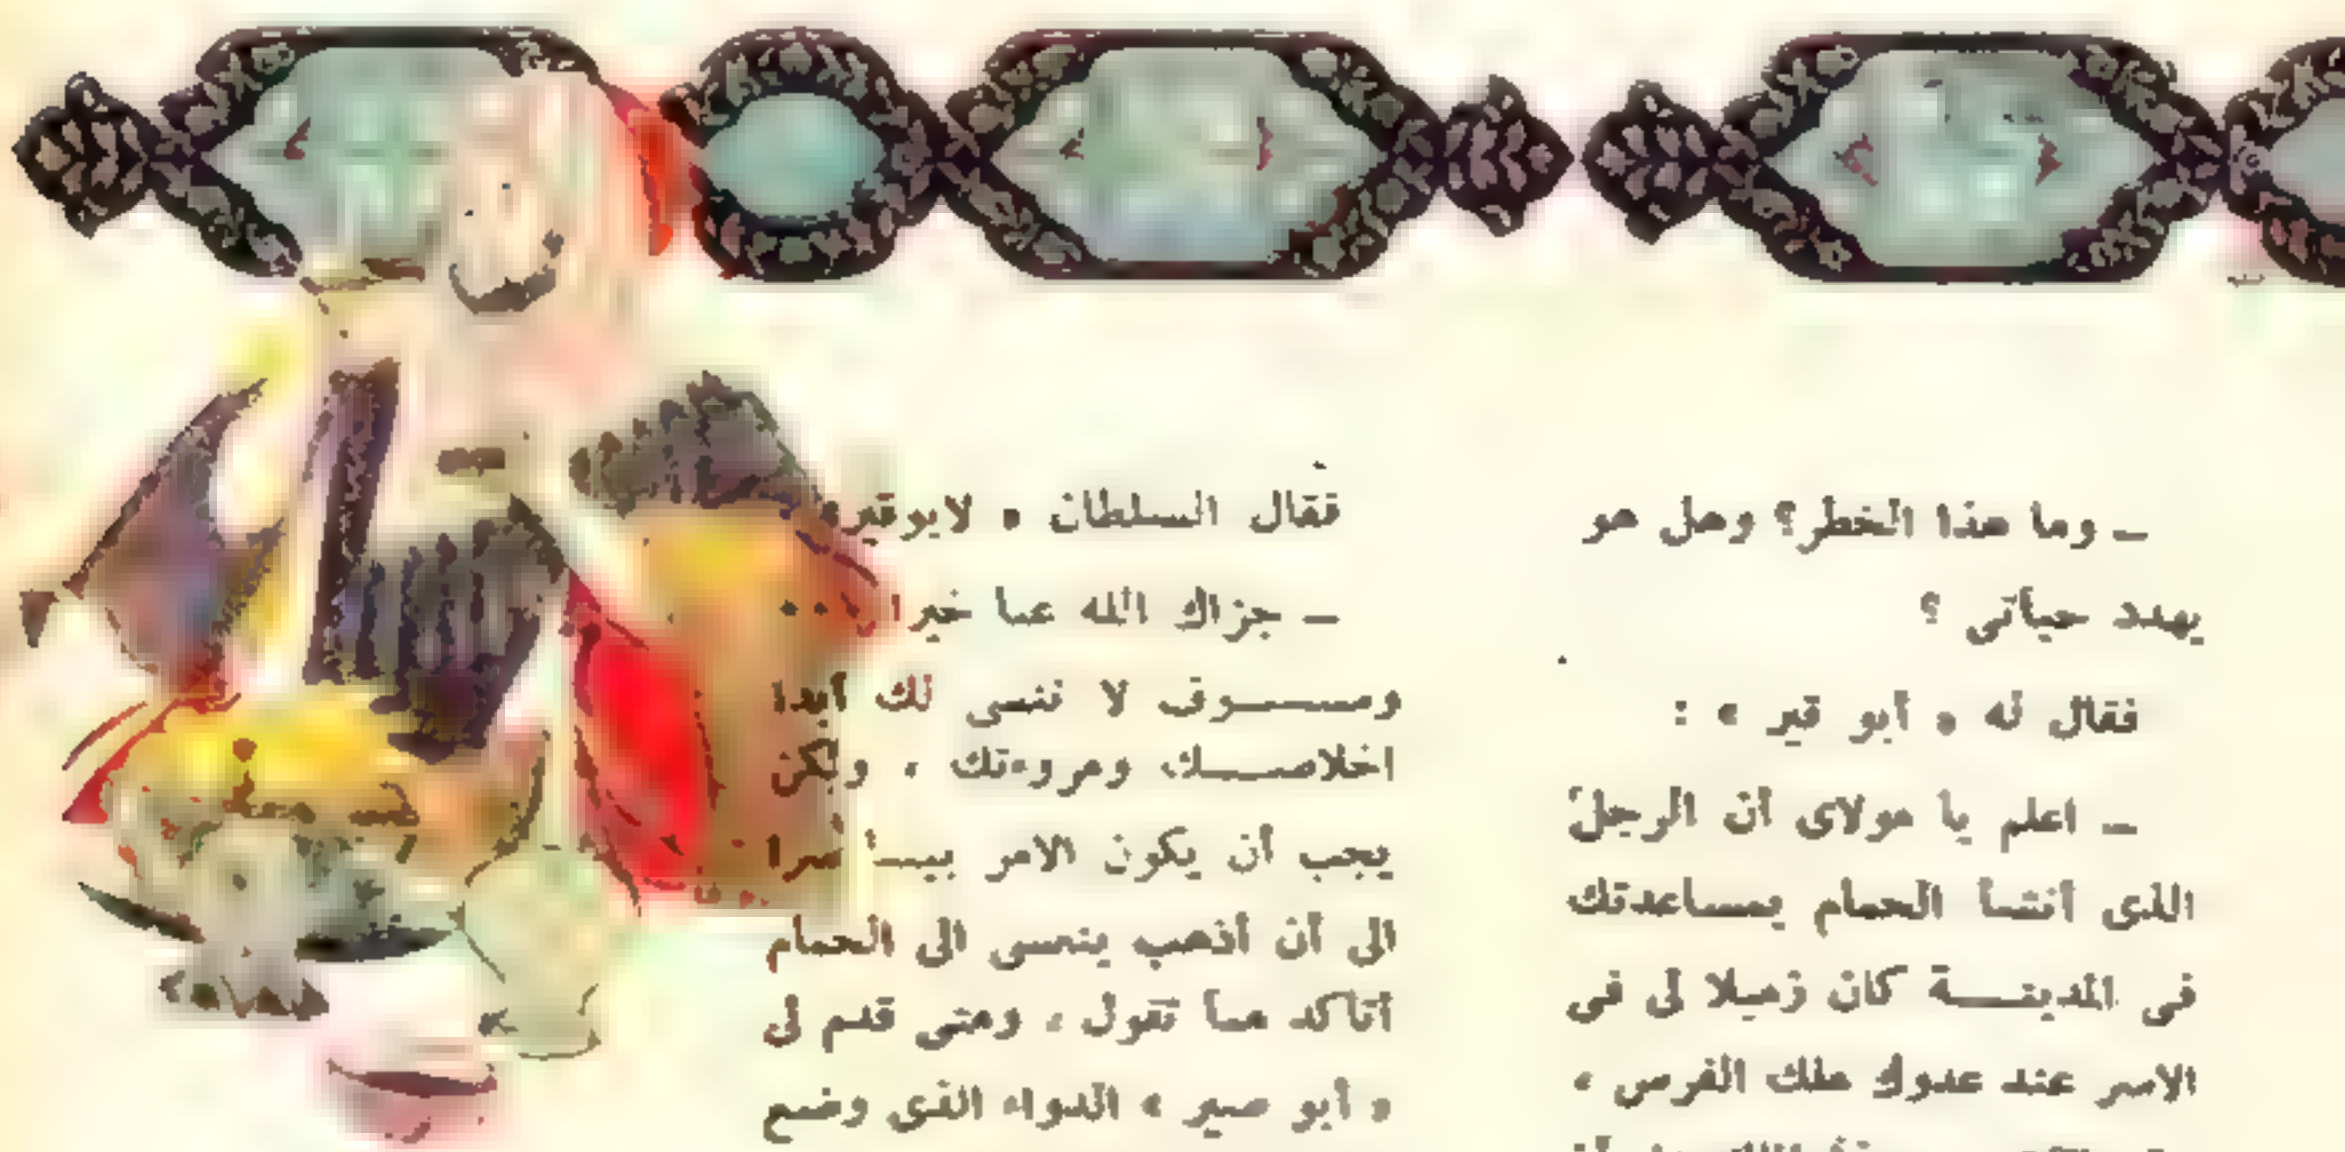 ـ وما هذا الخطر؟ وهل هو
يهدد حياتى ؟
فقال له « أبو قير » :
ـ اعلم يا مولاى أن الرجل
الذى أنشأ الحمام بمساعدتك
فى المدينـــة كان زميلا لى فى
الاسر عند عدوك ملك الفرس ،
فقال السلطان « لابوقير»
ـ جزاك الله عنا خيرا ...
وســـوف لا ننسى لك أبدا
اخلاصـــك ومروءتك ، ولكن
يجب أن يكون الامر بيننا سرا
الى أن أذهب بنفسى الى الحمام
أتأكد مما تقول ، ومتى قدم لى
« أبو صير » الدواء الذى وضع